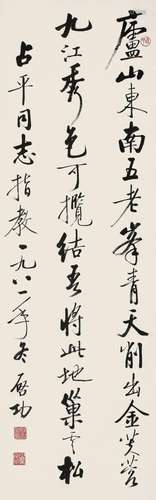 廬山東南五老峯青天削出金芙蓉
九江秀色可攬結吾將此地巢雲松
占平同志指教一九八一年冬启功